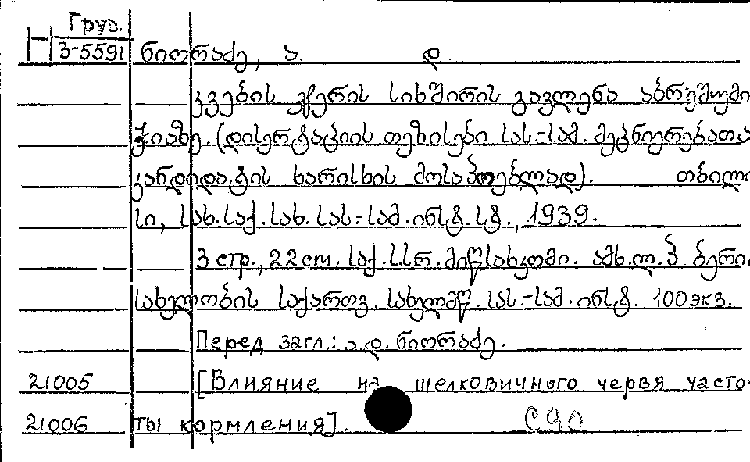 Груз.
3-5591 ნიორაძე, ა. დ.
კვების ჯერის სიხშირის გავლენა აბრეშუმის
ჭიაზე. (დისერტაციის თეზისები სას.-სამ. მეცნიერებათა
კანდიდატის ხარისხის მოსაპოებლად). თბილი
სი, სახ. საქ. სახ. სას.-სამ. ინსტ. სტ., 1939.
3 стр., 22 cm. საქ. სსრ. მიწსახკომი. ამხ. ლ. პ. ბერიას
სახელობის საქართვ. სახელმწ. სას.-სამ. ინსტ. 100 экз.
Перед загл.: ა. დ. ნიორაძე.
21005 [Влияние на шелковичного червя часто-
21006 ты кормления].